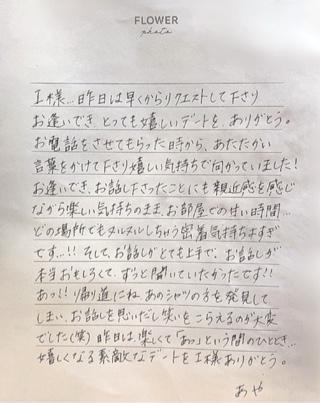 FLOWER
photo
I様…昨日は早くからリクエストして下さり
お逢いでき、とっても嬉しいデートを、ありがとう。
お電話をさせてもらった時から、あたたかい
言葉をかけて下さり嬉しい気持ちで向かっていました!
お逢いでき、お話し下さったことにも親近感を感じ
ながら楽しい気持ちのまま、お部屋での甘い時間…
どの場所でもヌルヌルしちゃう密着気持ちよすぎ
です…!! そして、お話しがとても上手で、お話しが
本当おもしろくて、ずっと聞いていたかったです!!
あっ!! 帰り道にね、あのシャツの方を発見して
しまい、お話しを思いだし笑いをこらえるのが大変
でした(笑) 昨日は、楽しくて「あっ」という間のひととき…
嬉しくなる素敵なデートをI様ありがとう。
あや